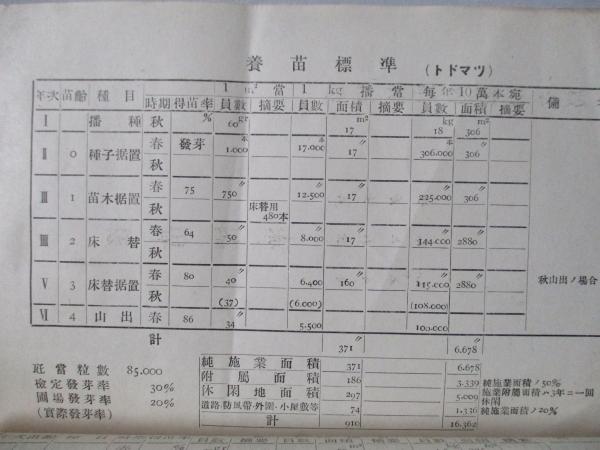 養苗標準 (トドマツ)
年次 苗齢 種目 時期 得苗率 1 m² 當 1 kg 播當 每年10萬本宛 備
員數 摘要 員數 面積 摘要 員數 面積 摘要
Ⅰ 播種 秋 % 60gr 17 m² 18 kg 306 m²
Ⅱ 0 種子据置 春 發芽 1.000本 17.000本 17〃 306.000本 306〃
秋
Ⅲ 1 苗木据置 春 75 750〃 12.500〃 17〃 225.000〃 306〃
秋 床替用 480本
Ⅲ 2 床替 春 64 50〃 8.000〃 17〃 144.000〃 2880〃
秋
Ⅴ 3 床替据置 春 80 40〃 6.400〃 160〃 115.000〃 2880〃 秋山出ノ場合
秋 (37) (6.000) (108.000)
Ⅵ 4 山出 春 86 34〃 5.500 100.000
計 371〃 6.678〃
瓩當粒數 85.000
檢定發芽率 30%
圃場發芽率 20%
(實際發芽率)
純施業面積 371 6.678
附屬面積 186 3.339 純施業面積ノ50%
休閑地面積 297 5.009 施業附屬面積ハ3年ニ一回休閑
道路·防風帶·外圍·小屋敷等 74 1.336 純施業面積ノ20%
計 910 16.362